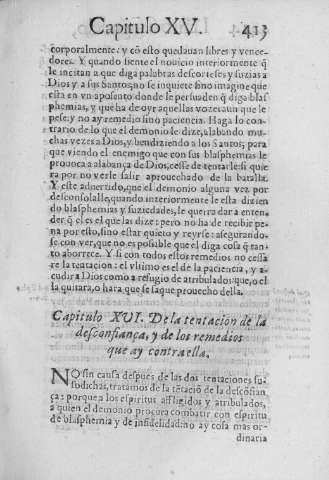 Capitulo XV. 413
corporalmente: y cõ esto quedauan libres y vence-
dores. Y quando siente el nouicio interiormente q̃
le incitan a que diga palabras descorteses, y suzias a
Dios y a sus Santos, no se inquiete sino imagine que
esta en vn aposento donde le persuaden q̃ diga blas-
phemias, y que ha de oyr aquellas vozes aun que le
pese: y no ay remedio sino paciencia. Haga lo con-
trario de lo que el demonio le dize, alabando mu-
chas vezes a Dios, y bendiziendo a los Santos; para
que viendo el enemigo que con sus blasphemias le
prouoca a alabança de Dios, cesse de tentarle si quie
ra por no verle salir aprouechado de la batalla.
Y este aduertido, que el demonio alguna vez por
desconsolalle, quando interiormente le esta dizien
do blasphemias y suziedades, le querra dar a enten-
der q̃ el es el que las dize: pero no ha de recibir pe-
na por esto, sino estar quieto y reyrse: asegurando-
se con ver, que no es posible que el diga cosa q̃ tan-
to aborrece. Y si con todos estos remedios no cessa
re la tentacion: el vltimo es el de la paciencia, y a-
cudir a Dios como a refugio de atribulados: que, o el
la quitara, o hara que se saque prouecho della.
Capitulo XVI. De la tentacion de la
desconfiança, y de los remedios
que ay contra ella.
NO sin causa despues de las dos tentaciones su-
sodichas, tratamos de la tẽtaciõ de la descõfian
ça: porque a los espiritus afligidos y atribulados,
a quien el demonio procura combatir con espiritu
de blasphemia y de infidelidad no ay cosa mas or-
dinaria